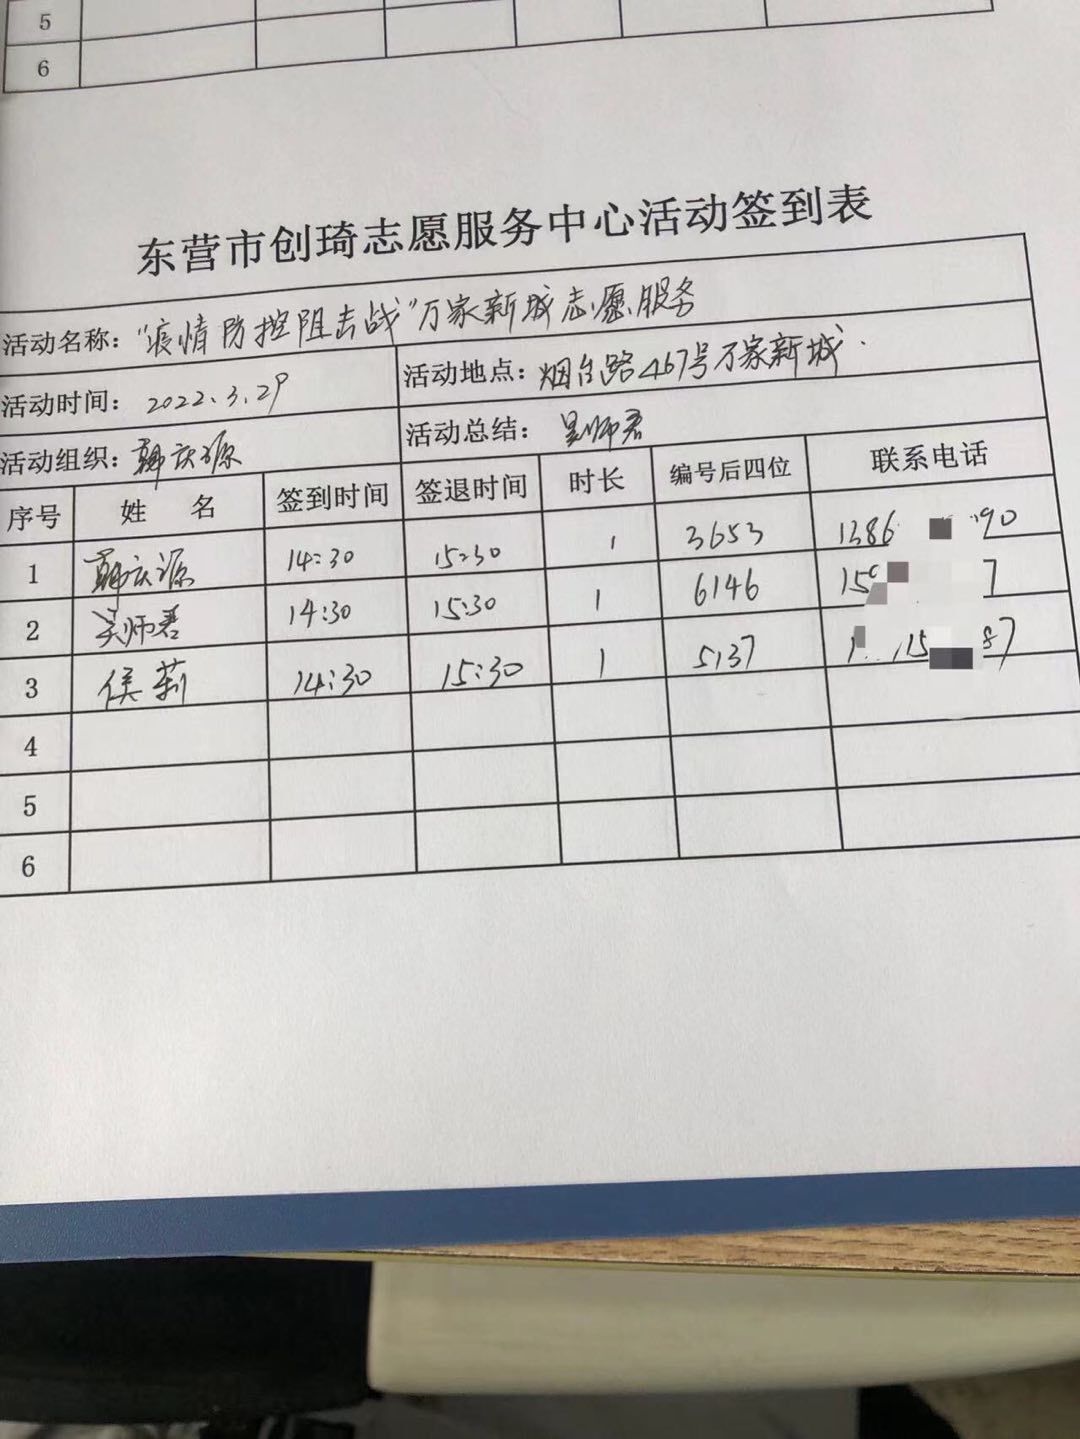 5
6
东营市创琦志愿服务中心活动签到表
活动名称："疫情防控阻击战"万家新城志愿服务
活动时间：2022.3.29 活动地点：烟台路467号万家新城.
活动组织：韩庆源 活动总结：吴师君
序号 姓 名 签到时间 签退时间 时长 编号后四位 联系电话
1 韩庆源 14:30 15:30 1 3653 1386 90
2 吴师君 14:30 15:30 1 6146 150 7
3 侯莉 14:30 15:30 1 5137 1 15 87
4
5
6